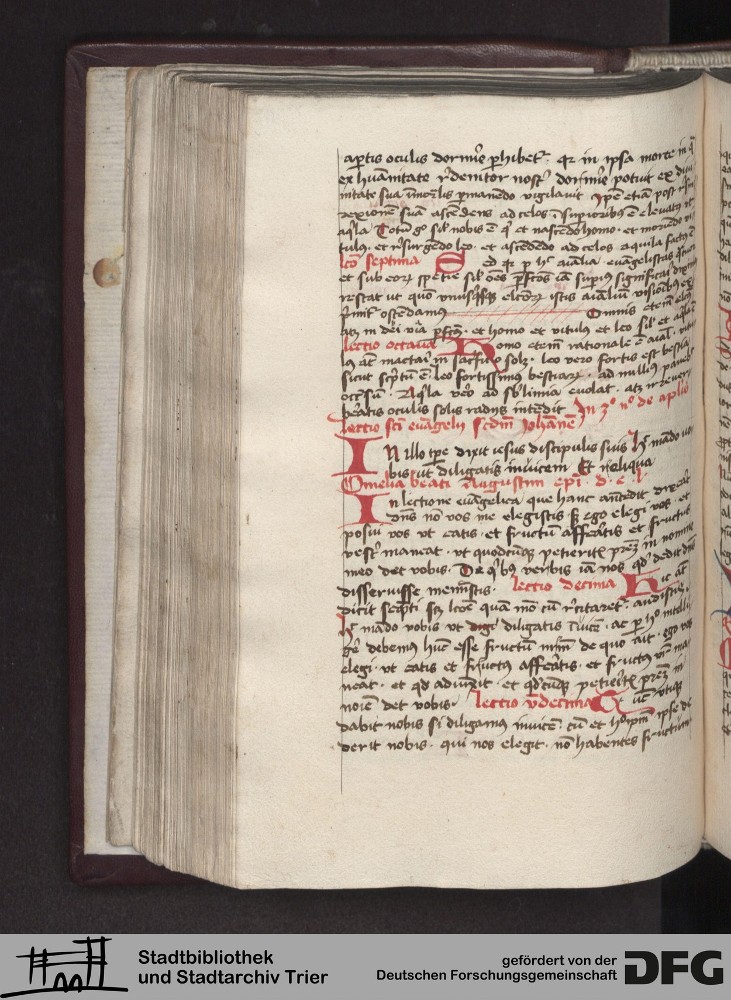 aptis oculis dormire phibet. qr in ipsa morte in q
ex huanitate rdemtor nost dormire potuit ex divi
nitate sua immortlis pmanedo vigilavit Ipe etia post rsur
rexione sua ascedens ad celos i supioribus e elevatus
aqla Totu go sil nobis e q et nascedo homo. et moriendo vi
tulus. et rsurgedo leo. et ascededo ad celos aquila factus e
lco septima Sed qr p hec aialia evagelistas
et sub eorum spetie sil oes pfectos ia supius significari
restat ut quo unusqsqz electorum istis aialium visionibus ex
primit ostedamus Omnis etem elcus
atz in dei via pfectus. et homo et vitulus et leo sil et aqla e
lectio octava Homo etem rationale e aial. vitu
lus at mactari in sacficio solz. leo vero fortis est bestia
sicut scptu e. leo fortissimus bestiarum. ad nullius pavebit
occsu. Aqla vero ad sblimia evolat. atz irrever
beratis oculis solis radiis intedit In 3o no de aplis
lectio sci evagelii scdm Johanne
In illo tpe dixit iesus discipulis suis Hec mado vo
bis ut diligatis invicem Et reliqua
Omelia beati Augustini epi. d. e. l
In lectione evagelica que hanc antecedit dixerat
dns no vos me elegistis sz ego elegi vos. et
posui vos ut eatis. et fructu afferatis et fructus
vester maneat. ut quodcuqz petieritis prez in nomine
meo det vobis. De qbus verbis ia nos qd dedit dns
disseruisse meminstis. lectio decima Hic at
dicit sequeti scz lcone qua mo cu rcitaret. audistis
Hec mado vobis ut diligatis iuice. ac p hoc intelli
ge debemus huc esse fructu nrm de quo ait. ego vos
elegi. ut eatis et fructus afferatis. et fructus vr ma
neat. et qd adiunxit. et qdcuqz petieritis prez in
noie det vobis. lectio vdecima Tuc utiqz
dabit nobis si diligamus invice. cu et hoc ipm ipse de
derit nobis. qui nos elegit. no habentes fructum
Stadtbibliothek
und Stadtarchiv Trier
gefördert von der
Deutschen Forschungsgemeinschaft
DFG